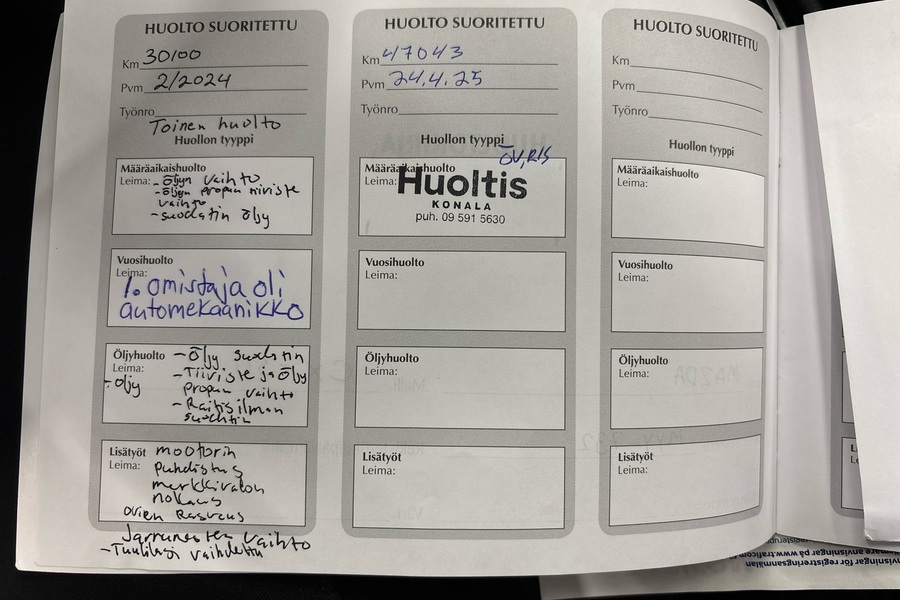 HUOLTO SUORITETTU
Km 30100
Pvm 2/2024
Työnro
Toinen huolto
Huollon tyyppi
Määräaikaishuolto
Leima: - öljyn vaihto
- öljyn propun tiiviste
vaihto
- suodatin öljy
Vuosihuolto
Leima:
1. omistaja oli
automekaanikko
Öljyhuolto - Öljy suodatin
Leima: - Tiiviste ja öljy
- öljy propun vaihto
- Raitisilman
suodatin
Lisätyöt moottorin
Leima: puhdistus
merkkivalon
nollaus
ovien Rasvaus
Jarrunesten vaihto
- Tuulilasi vaihdettu
HUOLTO SUORITETTU
Km 47043
Pvm 24.4.25
Työnro
Huollon tyyppi
ÖV, RIS
Määräaikaishuolto
Leima:
Huoltis
KONALA
puh. 09 591 5630
Vuosihuolto
Leima:
Öljyhuolto
Leima:
Lisätyöt
Leima:
HUOLTO SUORITETTU
Km
Pvm
Työnro
Huollon tyyppi
Määräaikaishuolto
Leima:
Vuosihuolto
Leima:
Öljyhuolto
Leima:
Lisätyöt
Leima: